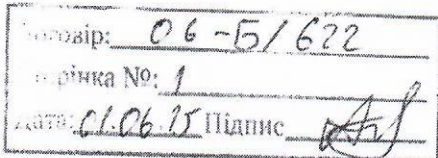 Договір: 06-Б/622
Сторінка №: 1
Дата: 01.06.15 Підпис